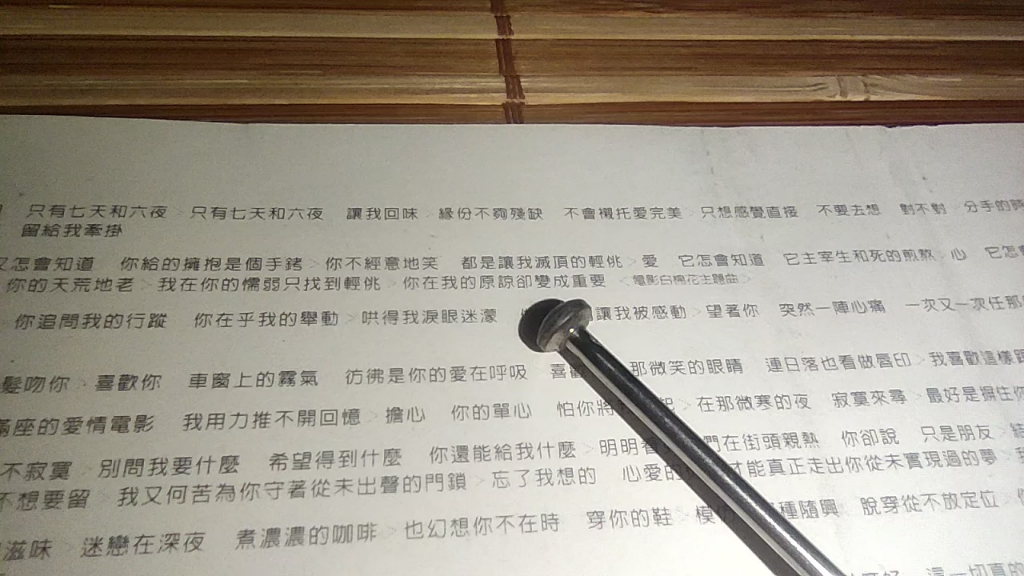 只有七天和六夜>只有七天和六夜 讓我回味>緣份不夠殘缺 不會襯托愛完美>只想感覺直接 不要去想 對不對>分手的時
留給我牽掛
又怎會知道 你給的擁抱是個手銬>你不經意地笑 都是讓我滅頂的輕佻>愛 它怎會知道 它主宰生和死的煎熬>心 它怎會
你的天荒地老>我在你的懦弱只找到輕佻>你在我的原諒卻變成重要 <電影白棉花主題曲>
你追問我的行蹤 你在乎我的舉動>哄得我淚眼迷濛 讓我被感動>望著你 突然一陣心痛 一次又一次任那
髮吻你>喜歡你 車窗上的霧氣 彷彿是你的愛在呼吸 喜 那微笑的眼睛 連日落也看做唇印>我喜歡這樣
滿座的愛情電影 我用力推不開回憶>擔心 你的單心 怕你將 起>在那微寒的夜 寂寞來尋>最好是摒住
不寂寞>別問我要什麼 希望得到什麼 你還能給我什麼>明明看 們在街頭親熱 你卻說 只是朋友>
不想要留>我又何苦為你守著從未出聲的門鎖>忘了我想的 心愛的 才能真正走出你從未實現過的夢>
滋味>迷戀在深夜 煮濃濃的咖啡>也幻想你不在時 穿你的鞋>模 種隨興 脫穿從不放定位>
好 這一切真的